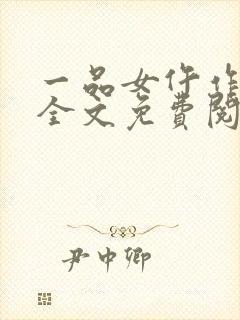 一品女仵作
全文免费阅
尹中卿